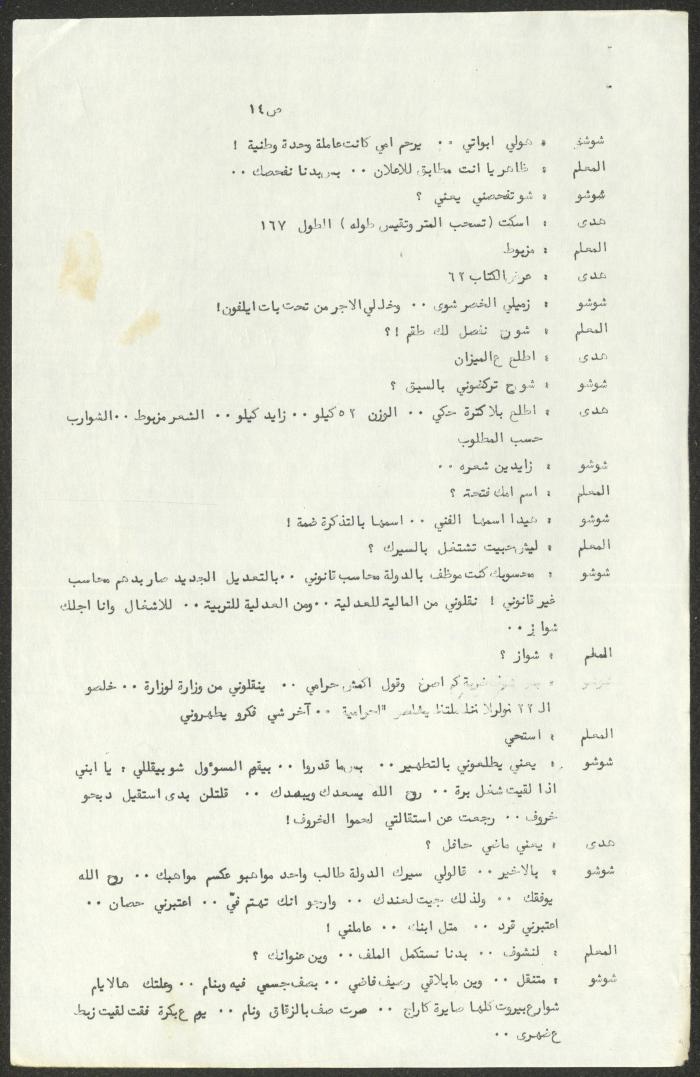 ص ١٤
شوشو : هولي ابواتي ٠٠ يرحم امي كانت عاملة وحدة وطنية !
المعلم : ظاهر يا انت مطابق للاعلان ٠٠ بس بدنا نفحصك ٠٠
شوشو : شو تفحصني يعني ؟
هدى : اسكت ( تسحب المتر وتقيس طوله ) الطول ١٦٧
المعلم : مزبوط
هدى : عرض الكتاب ٦٢
شوشو : زميلي الخصر شوى ٠٠ وخدلي الاجر من تحت بات ايلفون!
المعلم : شو رح نفصل لك طقم !؟
هدى : اطلع ع الميزان
شوشو : شو رح تركضوني بالسبق ؟
هدى : اطلع بلا كترة حكي ٠٠ الوزن ٥٢ كيلو ٠٠ زايد كيلو ٠٠ الشعر مزبوط ٠٠ الشوارب
حسب المطلوب
شوشو : زايدين شعره ٠٠
المعلم : اسم امك فتحة ؟
شوشو : هيدا اسمها الفني ٠٠ اسمها بالتذكرة ضمة !
المعلم : ليش حبيت تشتغل بالسيرك ؟
شوشو : محسوبك كنت موظف بالدولة محاسب قانوني ٠٠ بالتعديل الجديد صار بدهم محاسب
غير قانوني ! نقلوني من المالية للعدلية ٠٠ ومن العدلية للتربية ٠٠ للاشغال وانا اجلك
شواز ٠٠
المعلم : شواز ؟
شوشو : اصرخ وقول اكمش حرامي ٠٠ ينقلوني من وزارة لوزارة ٠٠ خلصو
الـ ٢٢ الحرامية ٠٠ آخر شي فكرو يطهروني
المعلم : استحي
شوشو : يعني يطلعوني بالتطهير ٠٠ بس ما قدروا ٠٠ بيقوم المسوٴول شو بيقللي : يا ابني
اذا لقيت شغل برة ٠٠ روح الله يسعدك ويبعدك ٠٠ قلتلن بدى استقيل دبحو
خروف ٠٠ رجعت عن استقالتي لحموا الخروف!
هدى : يعني ماضي حافل ؟
شوشو : بالاخير ٠٠ قالولي سيرك الدولة طالب واحد مواهبو عكس مواهبك ٠٠ روح الله
يوفقك ٠٠ ولذلك جيت لعندك ٠٠ وارجو انك تهتم فيّ ٠٠ اعتبرني حصان ٠٠
اعتبرني قرد ٠٠ متل ابنك ٠٠ عاملني !
المعلم : لنشوف ٠٠ بدنا نستكمل الملف ٠٠ وين عنوانك ؟
شوشو : متنقل ٠٠ وين ما بلاقي رصيف فاضي ٠٠ بصف جسمي فيه وبنام ٠٠ وعلتك هالايام
شوارع بيروت كلها صايرة كاراج ٠٠ صرت صف بالزقاق ونام ٠٠ يوم ع بكرة فقت لقيت زبط
ع ضهرى ٠٠